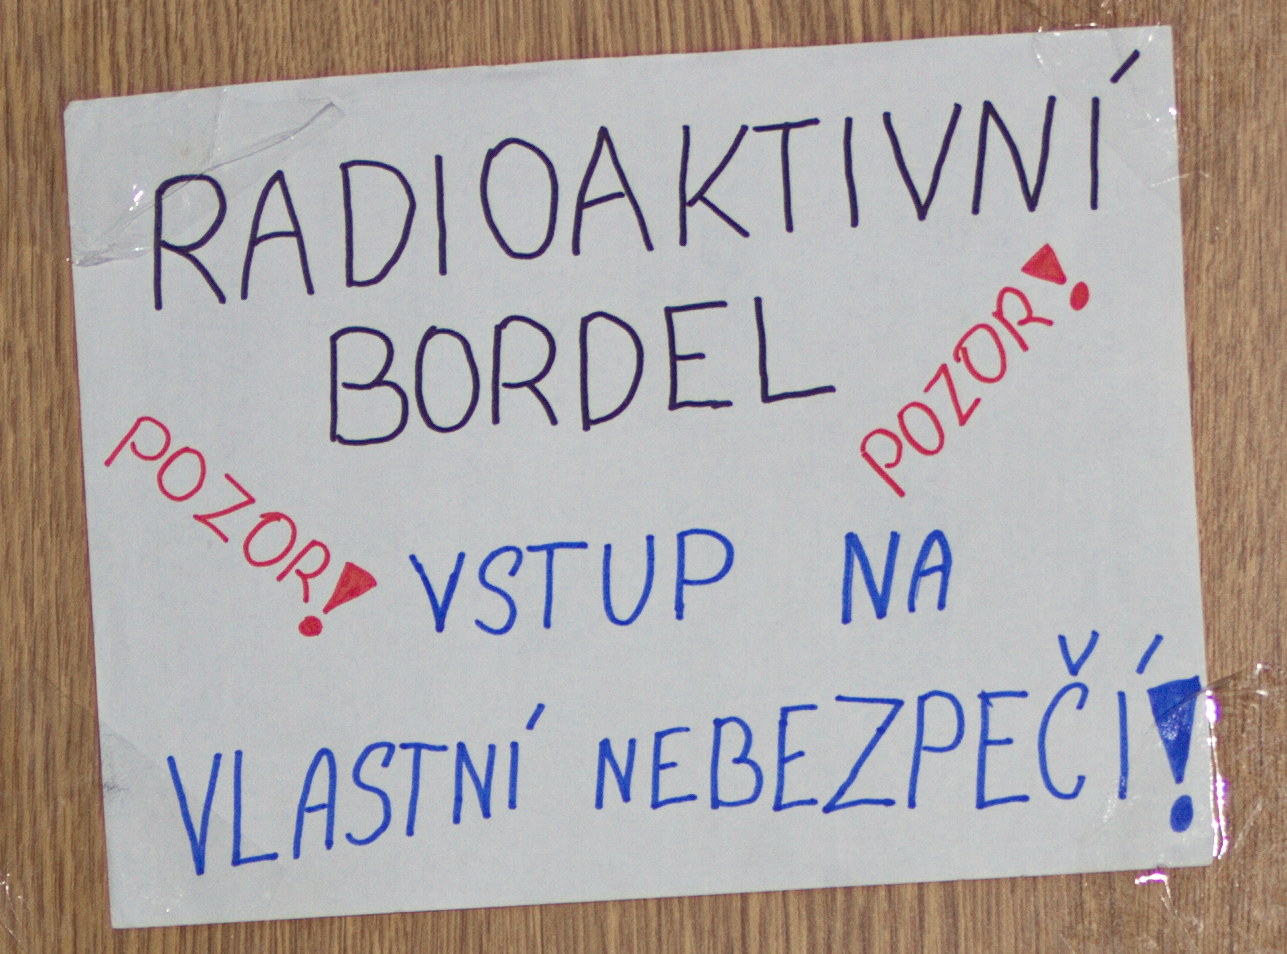 RADIOAKTIVNÍ
BORDEL
POZOR!
POZOR!
VSTUP NA
VLASTNÍ NEBEZPEČÍ!